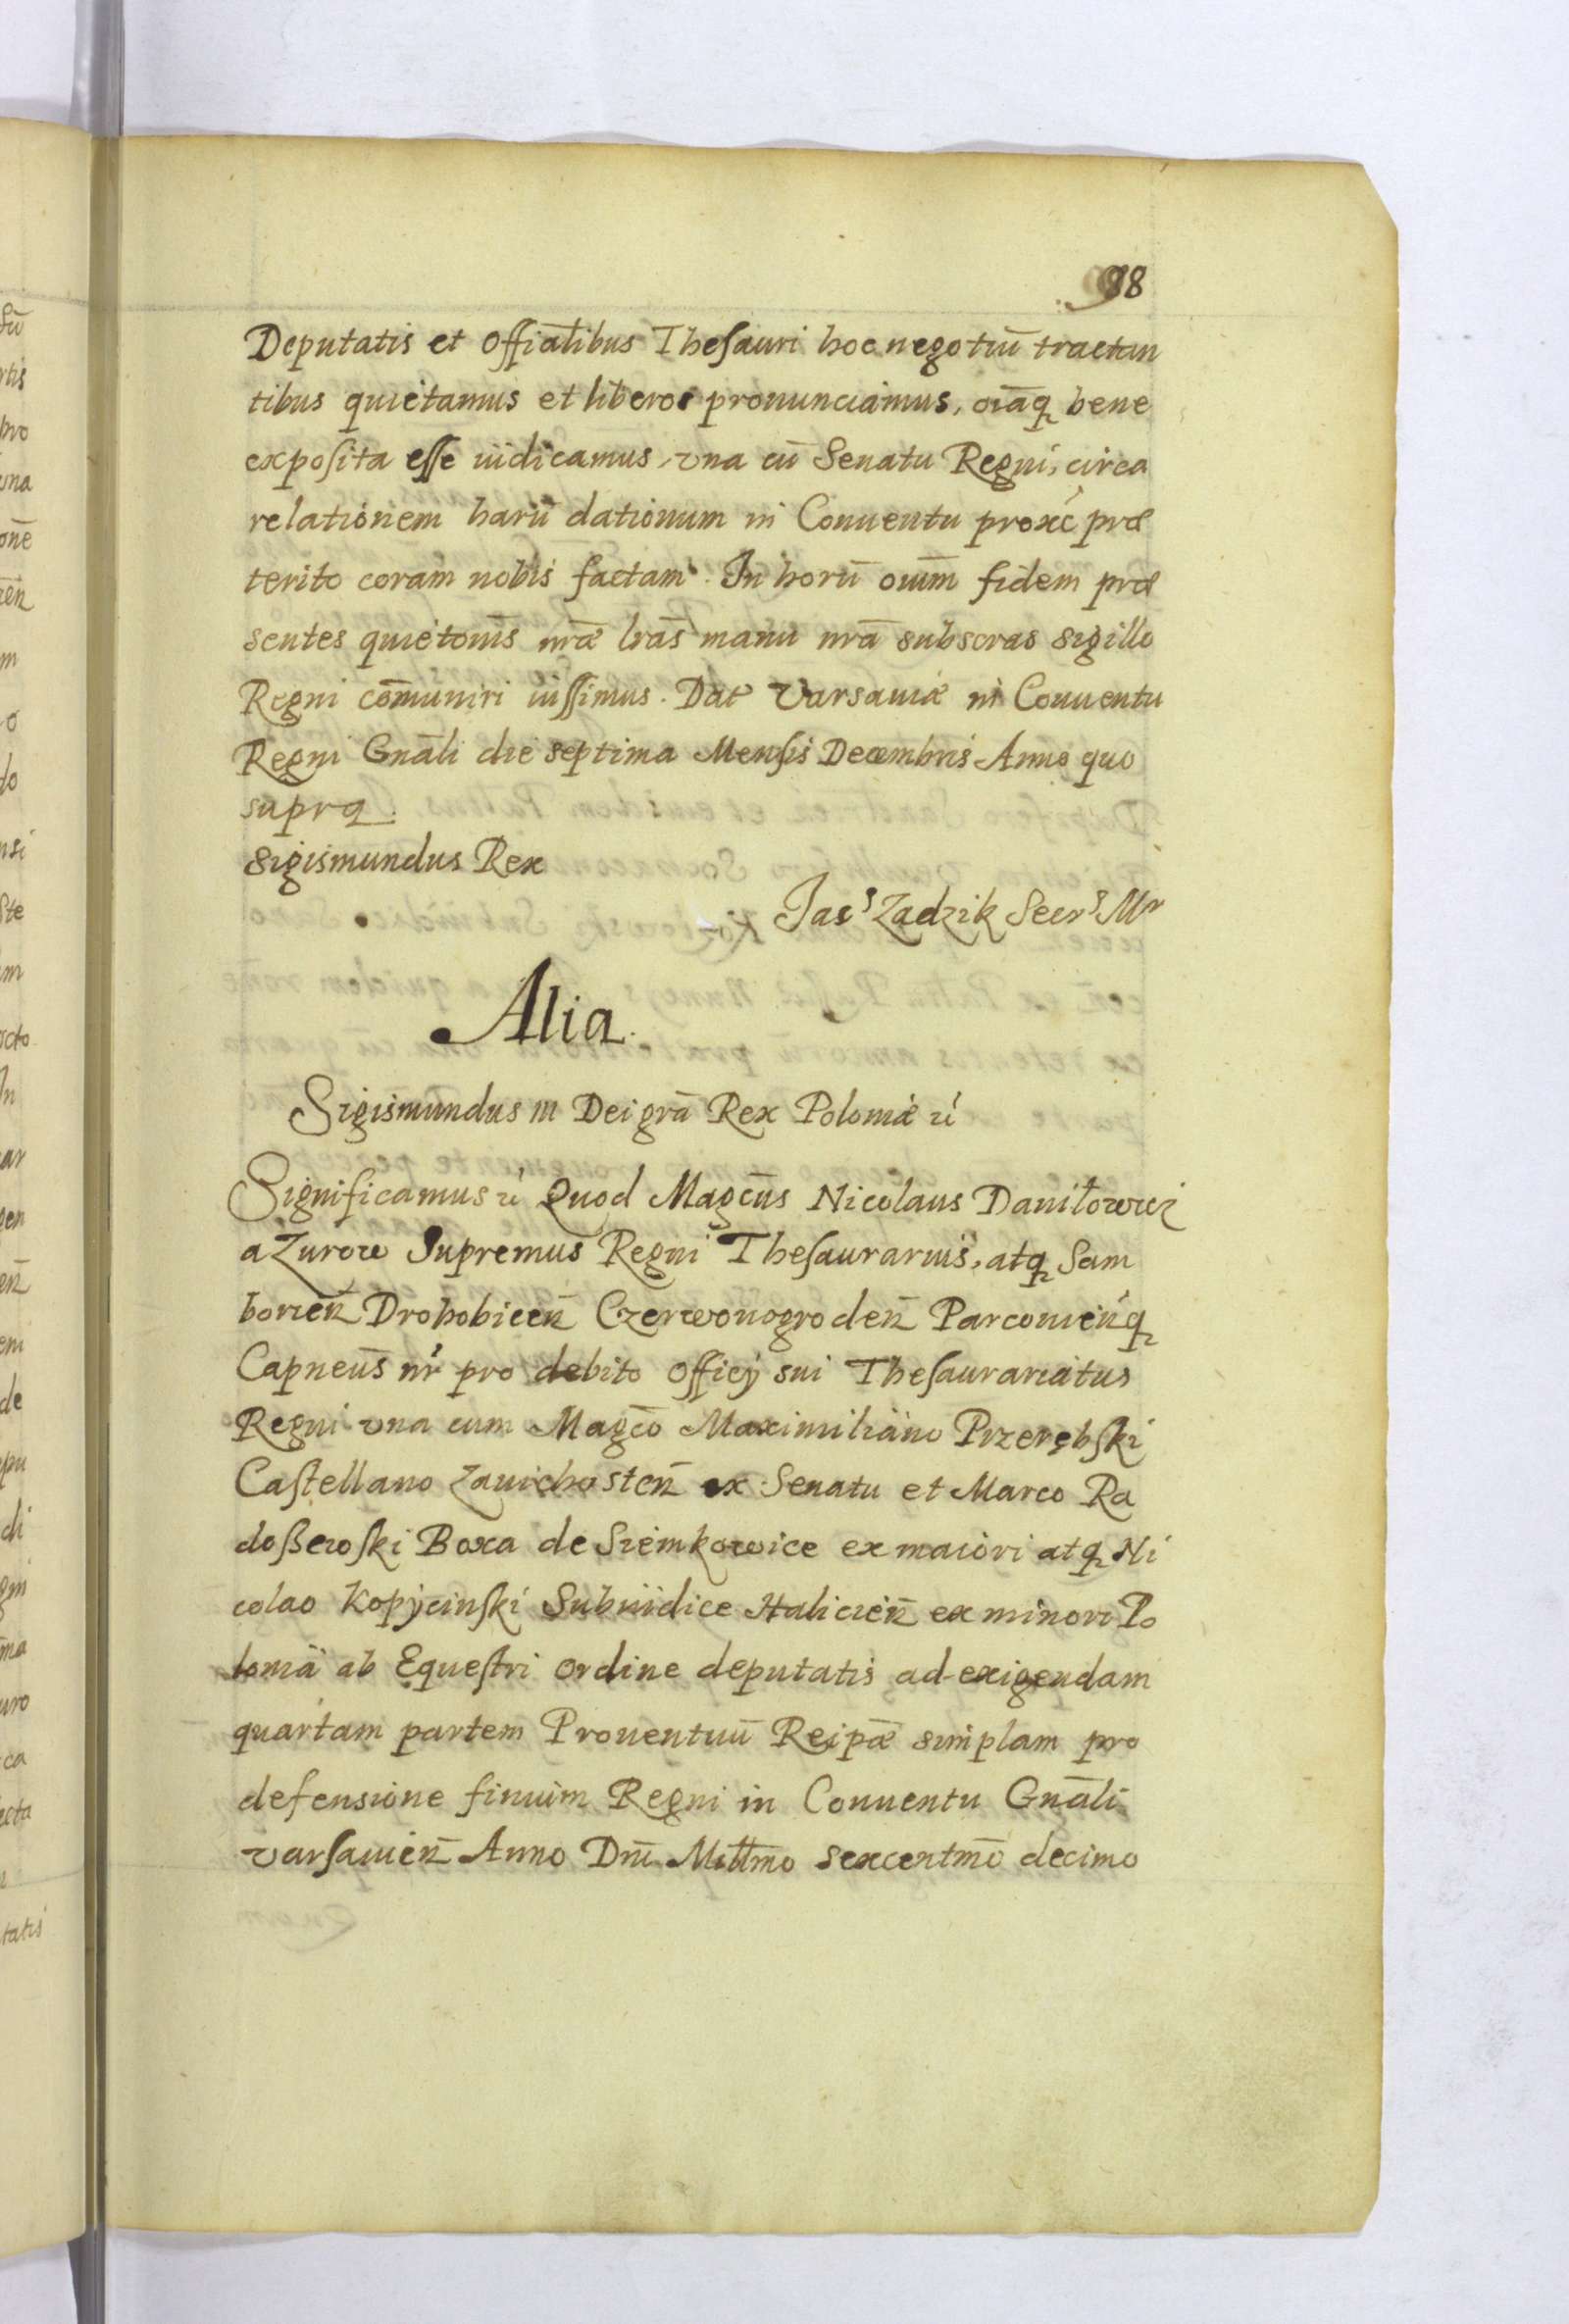 98
Deputatis et Offiãlibus Thesauri hoc negotiũ tractan
tibus quietamus et liberos pronunciamus, oiãq bene
exposita esse iudicamus, vna cũ Senatu Regni, circa
relationem harũ dationum in Conuentu proxé præ
terito coram nobis factam. In horũ oium̄ fidem præ
sentes quietonis̄ nrǣ lrãs manu nrã subscras sigillo
Regni cõmuniri iussimus. Dat Varsauiæ in Conuentu
Regni Gnãli die septima Mensis Decembris Anno quo
supra.
Sigismundus Rex
Jacs Zadzik Secrs Mr
Alia.
Sigismundus III Dei grã Rex Poloniæ ré
Significamus ré Quod Magcũs Nicolaus Daniłowicz
a Zurow Supremus Regni Thesaurarius, atq Sam
borień Drohobiceń Czerwonogrodeń Parconieńq
Capneũs nr̃ pro debito officÿ sui Thesaurariatus
Regni vna cum Magcõ Maximiliano Przerębski
Castellano Zauichosteń ex Senatu et Marco Ra
doßewski Boxa de Siemkowice ex maiori atq Ni
colao Kopÿcinski Subiudice Halicień ex minori Po
lonia ab Equestri ordine deputatis ad exigendam
quartam partem Prouentuũ Reipæ̃ simplam pro
defensione finium Regni in Conuentu Gnãli
varsauień Anno Dni̅ Millm̃o sexcentmõ decimo